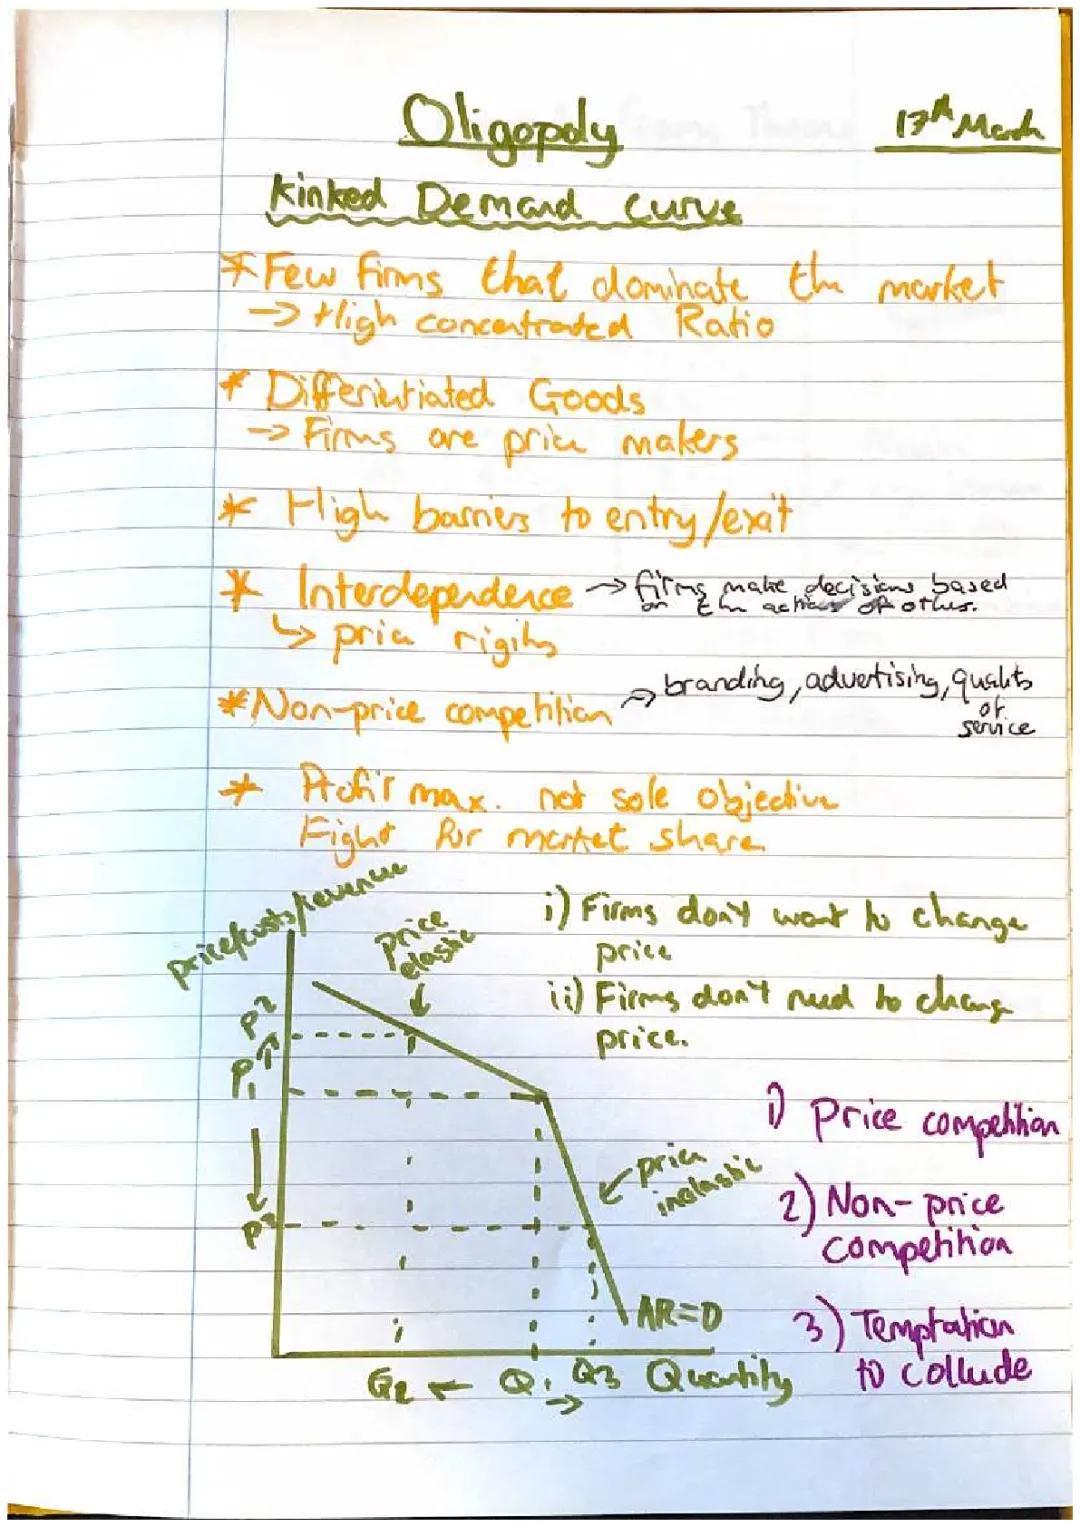 Oligopoly
17th March
Kinked Demand curve
* Few firms that dominate the market
→ High concentrated Ratio
* Differentiated Goods
→ Firms are price makers
* High barriers to entry/exit
* Interdependence → firms make decisions based
on the actions of others.
↳ price rigity
* Non-price competition → branding, advertising, quality
of
service
* Profit max. not sole objective
Fight for market share
price/costs/revenue
price
elastic
i) Firms don't want to change
price
ii) Firms don't need to change
price.
P2
P1
P3
price
inelastic
AR=D
Q2 ← Q1 → Q3 Quantity
1) Price competition
2) Non-price
competition
3) Temptation
to collude